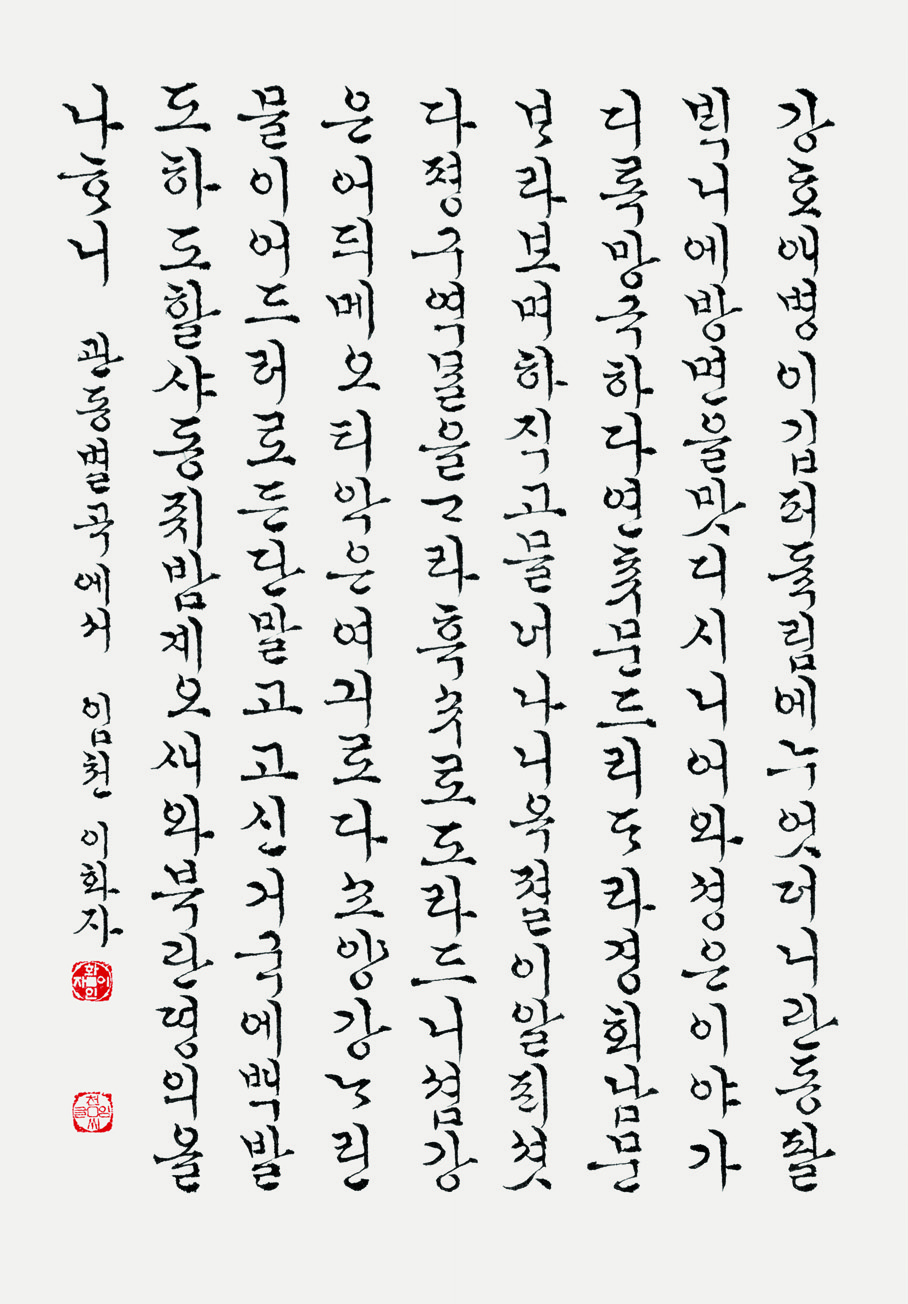 강호애병이깁퍼듁림에누엇더니관동팔
백니에방면을맛디시니어와셩은이야가
디록망극하다연츄문드리ᄃᆞ라경회남문
ᄇᆞ라보며하직고믈너나니옥졀이알픠셧
다평구역ᄆᆞᆯ을ᄀᆞ라흑슈로도라드니셤강
은어듸메오티악은여긔로다쇼양강ᄂᆞ린
믈이어드러로든단말고고신거국에백발
도하도할샤동쥐밤계오새와북관뎡의올
나ᄒᆞ니 관동별곡에서 임천 이화자